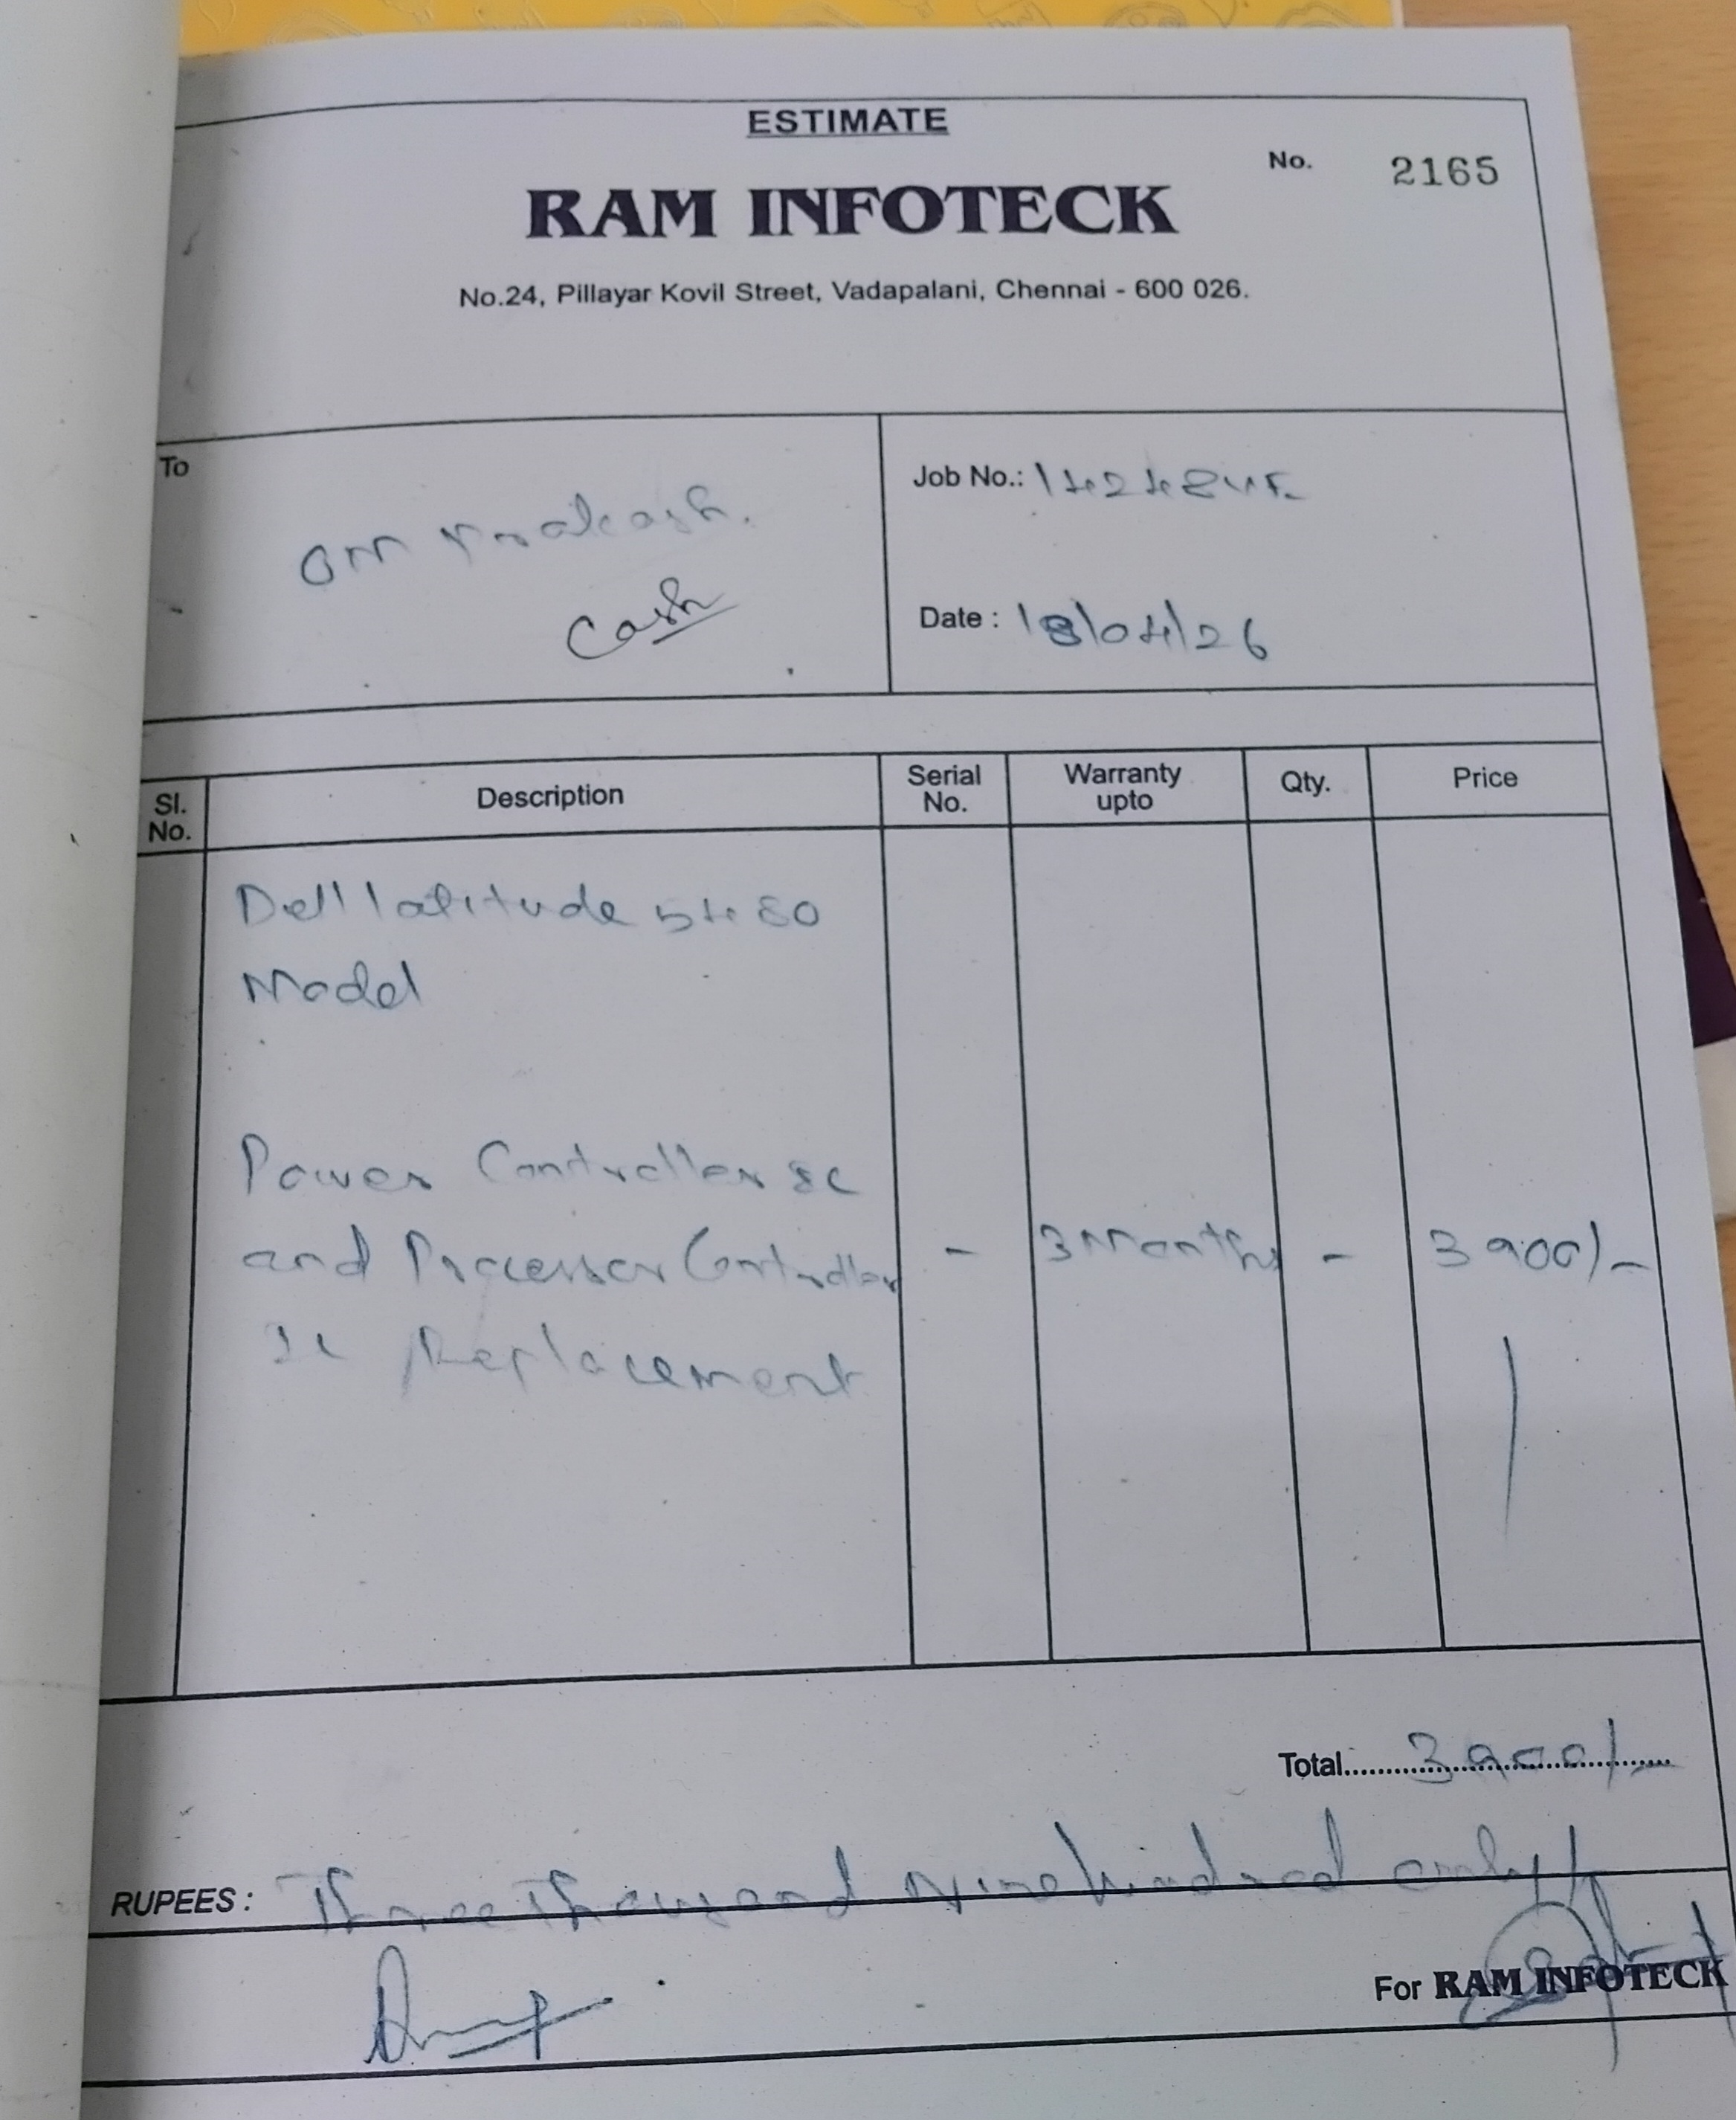 ESTIMATE
No. 2165
RAM INFOTECK
No.24, Pillayar Kovil Street, Vadapalani, Chennai - 600 026.
To
Om Prakash.
Cash
Job No.:
Date : 18/04/26
Sl. No. Description Serial No. Warranty upto Qty. Price
Dell latitude 5480
Model
Power Controller IC
and Processor Controller - 3 Months - 3900/-
IC Replacement
Total 3900/-
RUPEES : Three Thousand Nine hundred only
For RAM INFOTECK